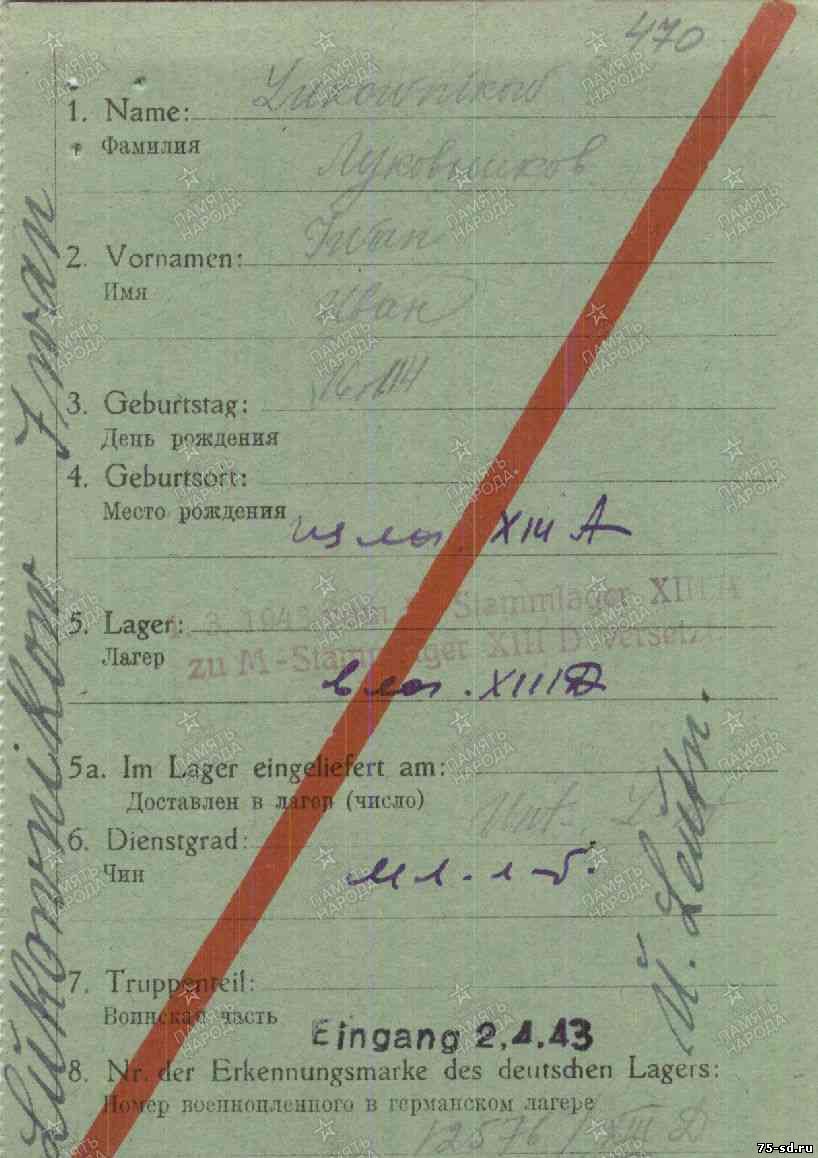 470
1. Name: Lukownikow
Фамилия
Луковников
2. Vornamen: Iwan
Имя
Иван
3. Geburtstag:
День рождения
4. Geburtsort:
Место рождения
из лаг. XIII A
3. 1943 Stammlager XIII A
5. Lager:
Лагер
zu M-Stammlager XIII D versetzt.
в лаг. XIII D
5a. Im Lager eingeliefert am:
Доставлен в лагер (число)
Unt. L
6. Dienstgrad:
Чин
мл. л-т.
7. Truppenteil:
Воинская часть
Eingang 2.4.43
8. Nr. der Erkennungsmarke des deutschen Lagers:
Номер военнопленного в германском лагере
12576 / XIII D
Lŭkownikow Iwan
U. Leutn.
ПАМЯТЬ НАРОДА
75-sd.ru